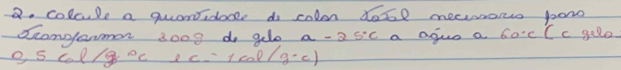 2. calcule a quantidade de calor total necessario para
transformar 200g de gelo a -25°C a agua a 60°C (c gelo
0,5 cal/g°C e c = 1 cal/g°C)